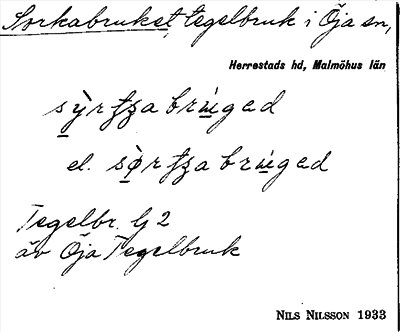 Sorkabruket, tegelbruk i Öja sn,
Herrestads hd, Malmöhus län
el.
Tegelbr. Lj 2
äv Öja Tegelbruk
NILS NILSSON 1933